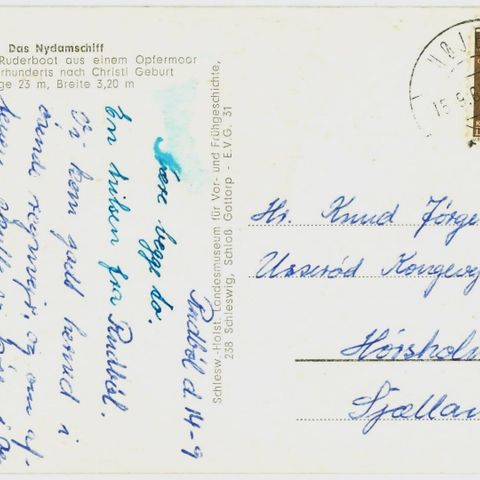 Das Nydamschiff
Ruderboot aus einem Opfermoor
rhunderts nach Christi Geburt
ge 23 m, Breite 3,20 m
Schlesw.-Holst. Landesmuseum für Vor- und Frühgeschichte,
238 Schleswig, Schloß Gottorp - E.V.G. 31
Randböl d. 14-9
Kære begge to.
En hilsen fra Randböl.
Vi kom godt herned i
øsende regnvejr, og om af-
HØJ
15.9.6
Hr. Knud Jörge
Usseröd Kongevej
Hörshol
Sjælla